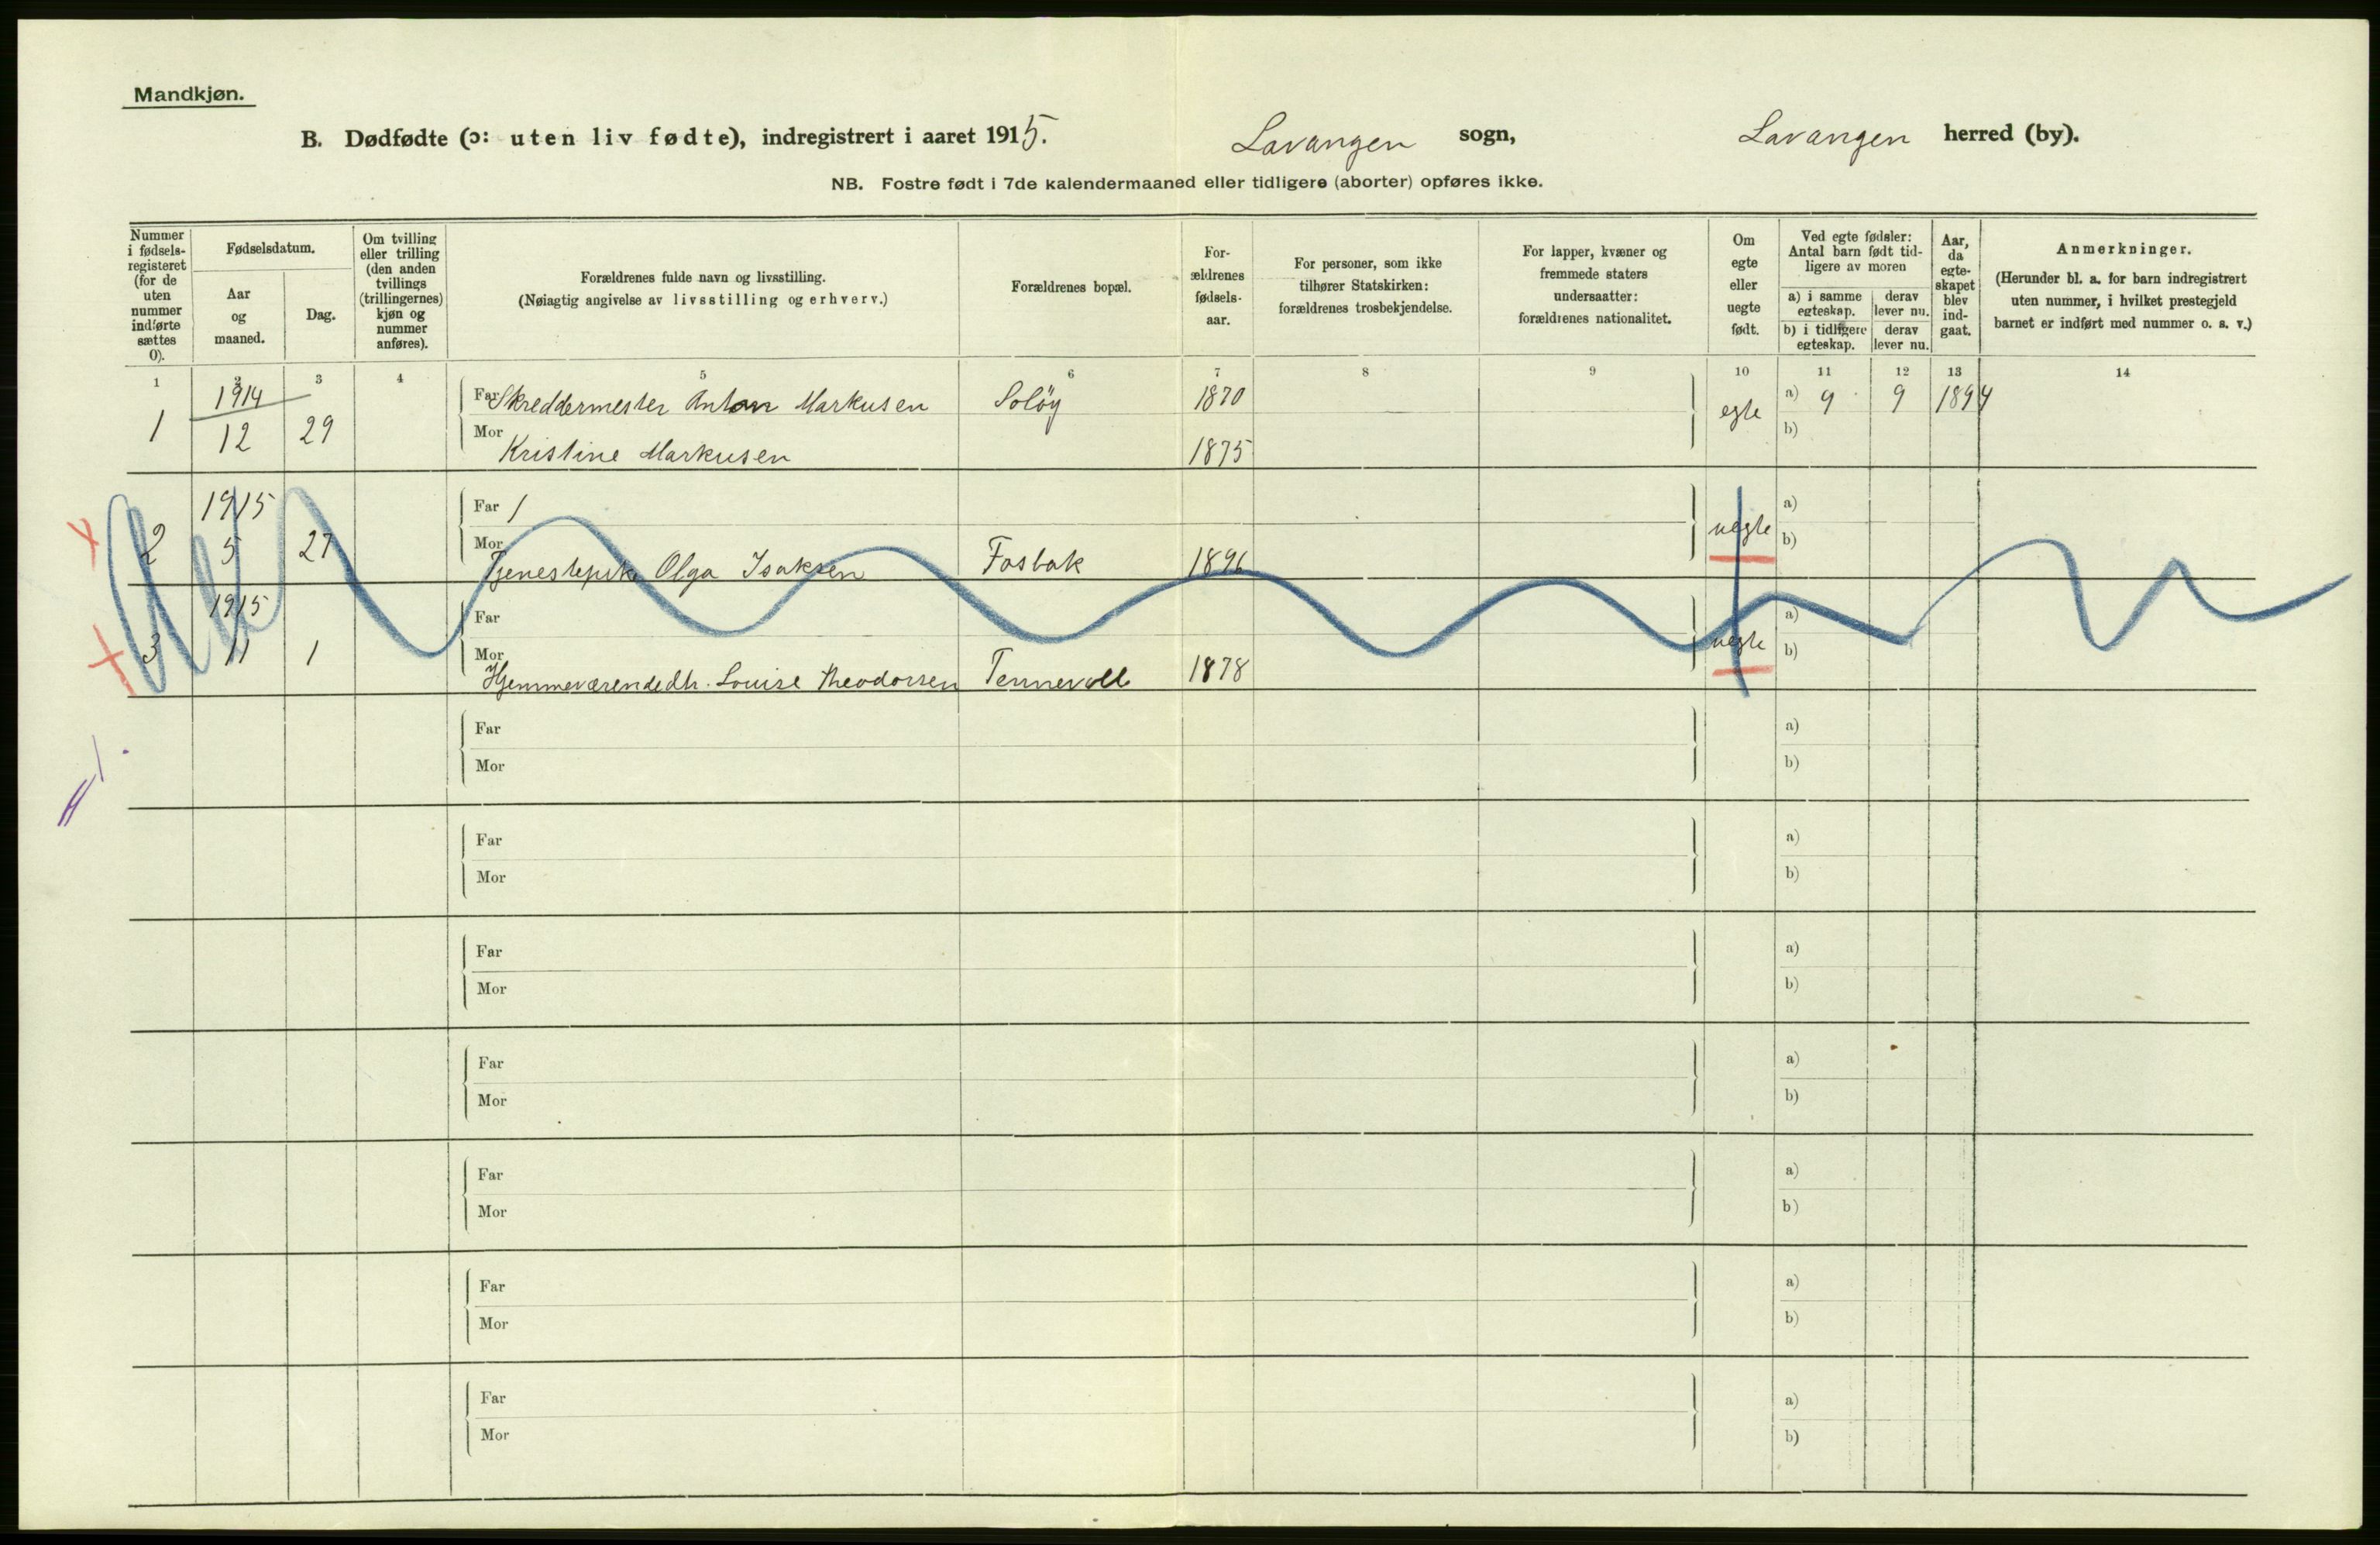 Mandkjøn.
B. Dødfødte (ɔ: uten liv fødte), indregistrert i aaret 1915. Lavangen sogn, Lavangen herred (by).
NB. Fostre født i 7de kalendermaaned eller tidligere (aborter) opføres ikke.
Nummer i fødsels-registeret (for de uten nummer indførte sættes 0).
Fødselsdatum.
Aar og maaned.
Dag.
Om tvilling eller trilling (den anden tvillings (trillingernes) kjøn og nummer anføres).
Forældrenes fulde navn og livsstilling.
(Nøiagtig angivelse av livsstilling og erhverv.)
Forældrenes bopæl.
For-ældrenes fødsels-aar.
For personer, som ikke tilhører Statskirken: forældrenes trosbekjendelse.
For lapper, kvæner og fremmede staters undersaatter: forældrenes nationalitet.
Om egte eller uegte født.
Ved egte fødsler: Antal barn født tid-ligere av moren
a) i samme egteskap. derav lever nu.
b) i tidligere egteskap. derav lever nu.
Aar, da egte-skapet blev ind-gaat.
Anmerkninger.
(Herunder bl. a. for barn indregistrert uten nummer, i hvilket prestegjeld barnet er indført med nummer o. s. v.)
1 2 3 4 5 6 7 8 9 10 11 12 13 14
1 1914 12 29 Far Skreddermester Anton Markusen Soløy 1870 egte a) 9 9 1894
Mor Kristine Markusen 1875 b)
2 1915 5 27 Far / uegte a)
Mor Tjenestepike Olga Isaksen Fosbak 1896 b)
3 1915 11 1 Far uegte a)
Mor Hjemmeværende dtr. Louise Theodorsen Tennevoll 1878 b)
Far a)
Mor b)
Far a)
Mor b)
Far a)
Mor b)
Far a)
Mor b)
Far a)
Mor b)
Far a)
Mor b)
Far a)
Mor b)